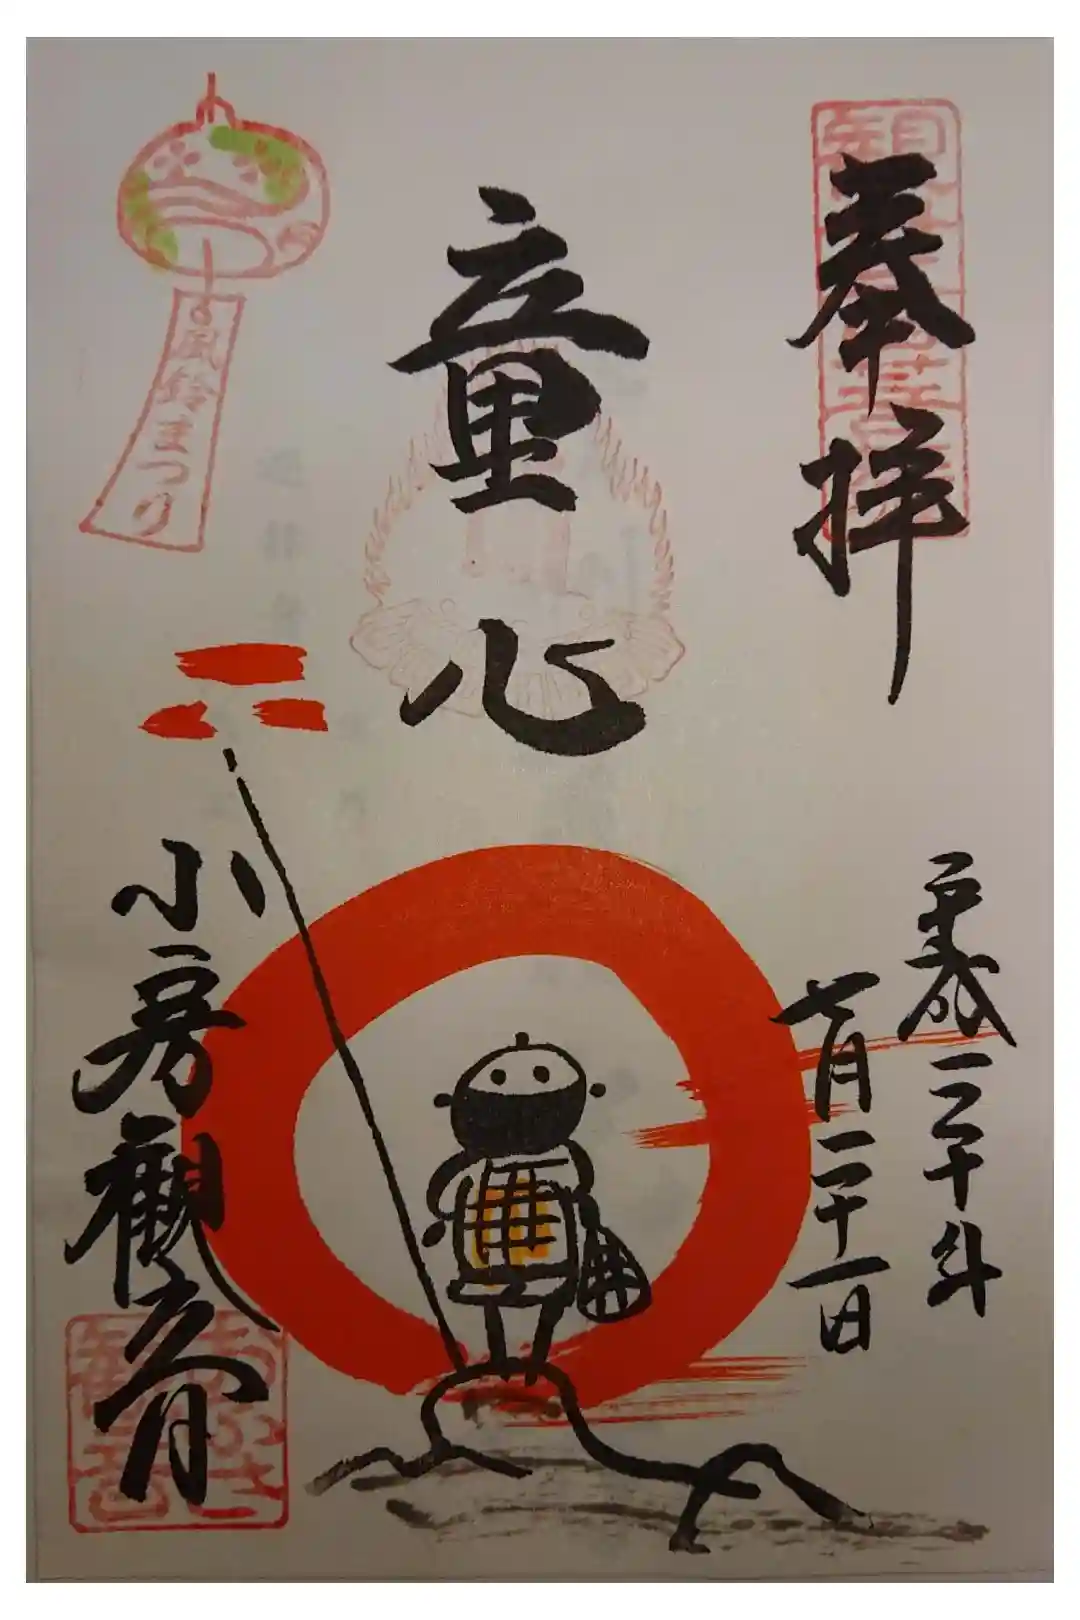 奉拝
平成三十年
七月二十一日
童心
小房観音
風鈴まつり